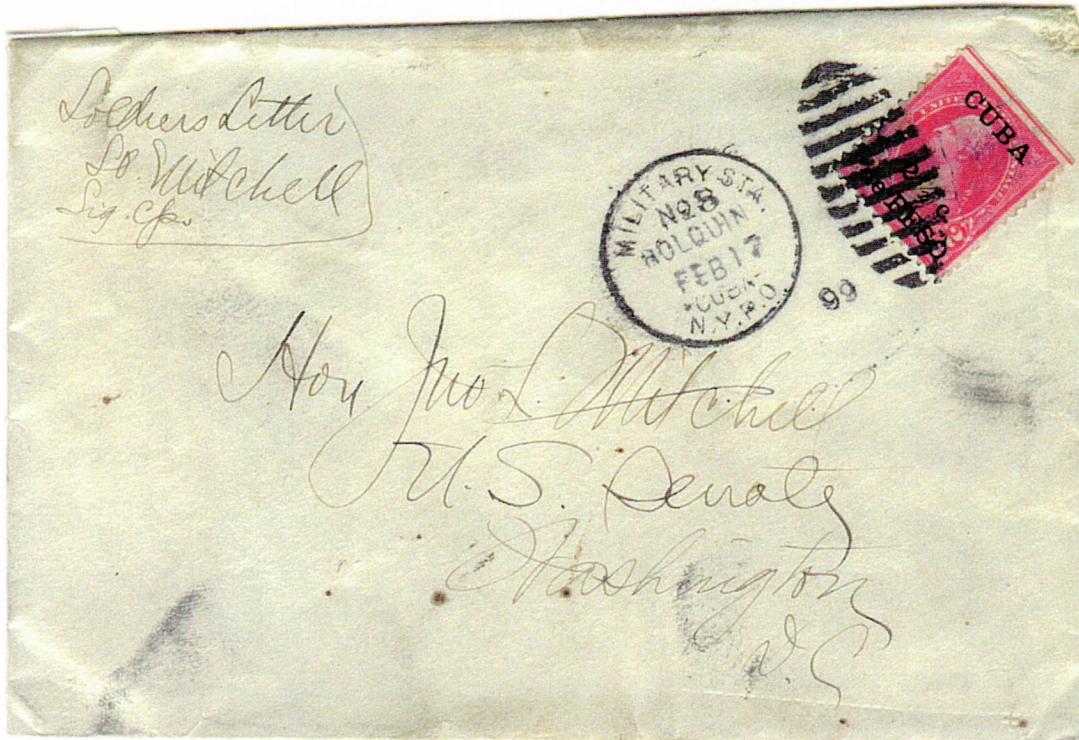 Soldiers Letter
Mitchell
Sig.
CUBA
PESO.
MILITARY STA.
No 8
HOLQUIN
FEB 17
CUBA
N.Y.P.O.
99
Hon Jno L. Mitchell
U.S. Senate
Washington
D.C